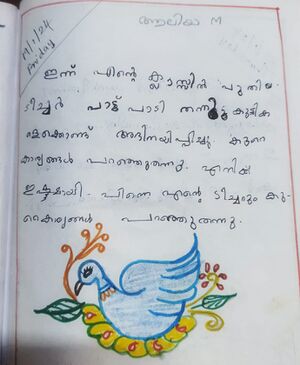 19/1/24
Friday
ആലിയ N
ഇന്ന് എന്റെ ക്ലാസ്സിൽ പുതിയ
ടീച്ചർ പാട്ട് പാടി തന്നു കുട്ടിക
ളെക്കൊണ്ട് അഭിനയിപ്പിച്ചു. കുറെ
കാര്യങ്ങൾ പറഞ്ഞുതന്നു. എനിക്ക്
ഇഷ്ടമായി. പിന്നെ എന്റെ ടീച്ചറും കു
കൈര്യങ്ങൾ പറഞ്ഞുതന്നു.